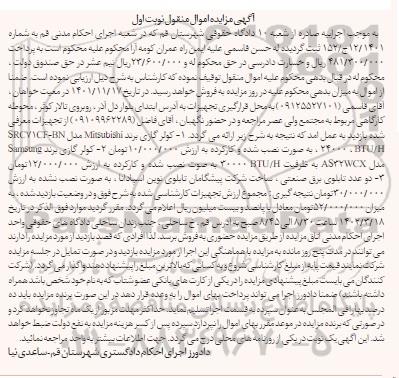 آگهی مزایده اموال منقول نوبت اول
به موجب اجراییه صادره از شعبه ۱۰ دادگاه حقوقی شهرستان قم که در شعبه اجرای احکام مدنی قم به شماره
۱۴۰۱/ج/۱۵۲ ثبت گردیده له حسن قاسمی علیه ایمن راه عمران کومه آرا محکوم علیه محکوم است به پرداخت
۴۸۱/۲۰۰/۰۰۰ ریال و خسارت دادرسی در حق محکوم له و ۲۳/۶۰۰/۰۰۰ ریال نیم عشر در حق صندوق دولت ،
محکوم له در قبال بدهی محکوم علیه اموال منقول توقیف نموده که کارشناس به شرح ذیل ارزیابی نموده است. ضمنا
از اموال به میزان بدهی محکوم علیه در روز مزایده به فروش خواهد رسید. در تاریخ ۱۴۰۱/۱۱/۱۷ در معیت خواهان ،
آقای قاسمی (۰۹۱۲۵۵۲۷۱۰۱) به محل قرارگیری تجهیزات به آدرس ابتدای بلوار دل آذر ، روبروی تالار کوثر ، محوطه
کارگاهی مربوط به مجتمع ولی عصر مراجعه و در حضور نگهبان ، آقای فاضل (۰۹۱۰۹۹۶۲۲۸۹) از تجهیزات معرفی
شده بازدید به عمل آمد که نتیجه به شرح زیر ارائه می گردد. ۱- کولر گازی برند Mitsubishi مدل SRCY۱CF-BN
۲۴۰۰۰ BTU/H ، به صورت نصب شده و کارکرده به ارزش ۱۰/۰۰۰/۰۰۰ تومان ۲- کولر گازی برند Samsung
مدل AS۳۲WCX به ظرفیت ۳۰۰۰۰ BTU/H به صورت نصب شده و کارکرده به ارزش ۱۲/۰۰۰/۰۰۰ تومان
۳- دو عدد تابلوی برق صنعتی ، ساخت شرکت پیشگامان تابلوی نوین اسپادانا ، به صورت نصب نشده به ارزش
۳۰/۰۰۰/۰۰۰ تومان نتیجه گیری : مجموع ارزش تجهیزات کارشناسی شده به شرح فوق و در وضعیت بازدید شده ، به
میزان ۵۲/۰۰۰/۰۰۰ تومان معادل با پانصد و بیست میلیون ریال اعلام می گردد. مقرر گردید موارد فوق الذکر در تاریخ
۱۴۰۲/۳/۱۸ از ساعت ۸/۳۰ الی ۸/۴۵ صبح به آدرس قم - خ ساحلی - جنب زندان ساحلی دادگاه های حقوقی واحد
اجرای احکام مدنی اتاق مزایده از طریق مزایده حضوری به فروش برسد. لذا افرادی که قصد بازدید از مورد مزایده را دارند
می توانند در مدت پنج روز مانده به مزایده با هماهنگی این اجرا از مورد مزایده بازدید و در صورت تمایل در جلسه مزایده
شرکت نمایند قیمت پایه از مبلغ کارشناسی شروع و به کسانی که بالاترین مبلغ را پیشنهاد دهند واگذار می گردد. (شرکت
کنندگان می بایست مبلغ پیشنهادی مزایده را در یکی از کارت های بانکی عضو شتاب که به نام خود شخص باشد همراه
داشته باشند) ضمنا دادورز اجرا می تواند پرداخت بهای اموال را به وعده قرار دهد در این صورت برنده مزایده باید ده
درصد بها را فی المجلس به عنوان سپرده به قسمت اجرا تسلیم نماید. حداکثر مهلت مزبور از یک ماه تجاوز نخواهد کرد و
در صورتی که برنده مزایده در موعد مقرر بهای اموال را نپردازد سپرده پس از کسر هزینه مزایده به نفع دولت ضبط خواهد
شد. این آگهی یک نوبت در یکی از روزنامه های محلی درج می گردد. جهت اطلاعات بیشتر به واحد مراجعه نمائید.
دادورز اجرای احکام دادگستری شهرستان قم - ساعدی نیا